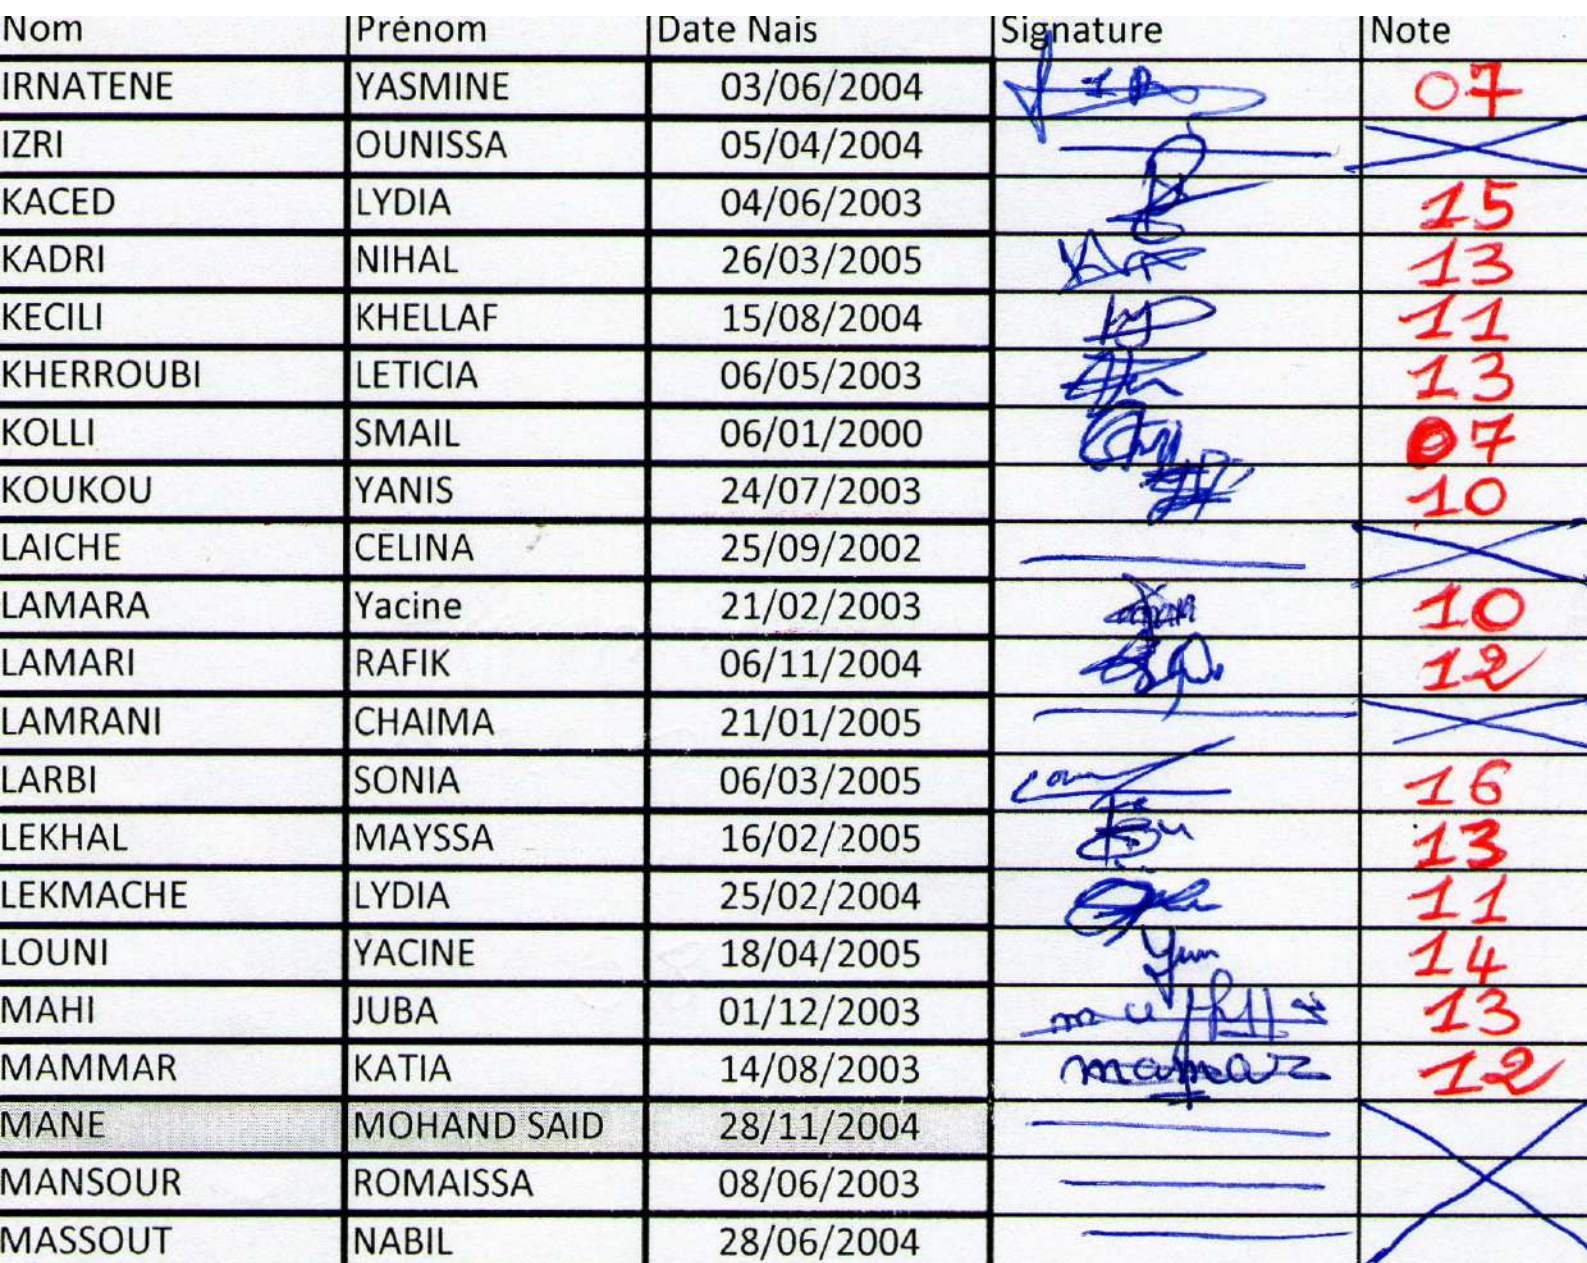 Nom Prénom Date Nais Signature Note
IRNATENE YASMINE 03/06/2004 07
IZRI OUNISSA 05/04/2004
KACED LYDIA 04/06/2003 15
KADRI NIHAL 26/03/2005 13
KECILI KHELLAF 15/08/2004 11
KHERROUBI LETICIA 06/05/2003 13
KOLLI SMAIL 06/01/2000 07
KOUKOU YANIS 24/07/2003 10
LAICHE CELINA 25/09/2002
LAMARA Yacine 21/02/2003 10
LAMARI RAFIK 06/11/2004 12
LAMRANI CHAIMA 21/01/2005
LARBI SONIA 06/03/2005 16
LEKHAL MAYSSA 16/02/2005 13
LEKMACHE LYDIA 25/02/2004 11
LOUNI YACINE 18/04/2005 14
MAHI JUBA 01/12/2003 13
MAMMAR KATIA 14/08/2003 12
MANE MOHAND SAID 28/11/2004
MANSOUR ROMAISSA 08/06/2003
MASSOUT NABIL 28/06/2004